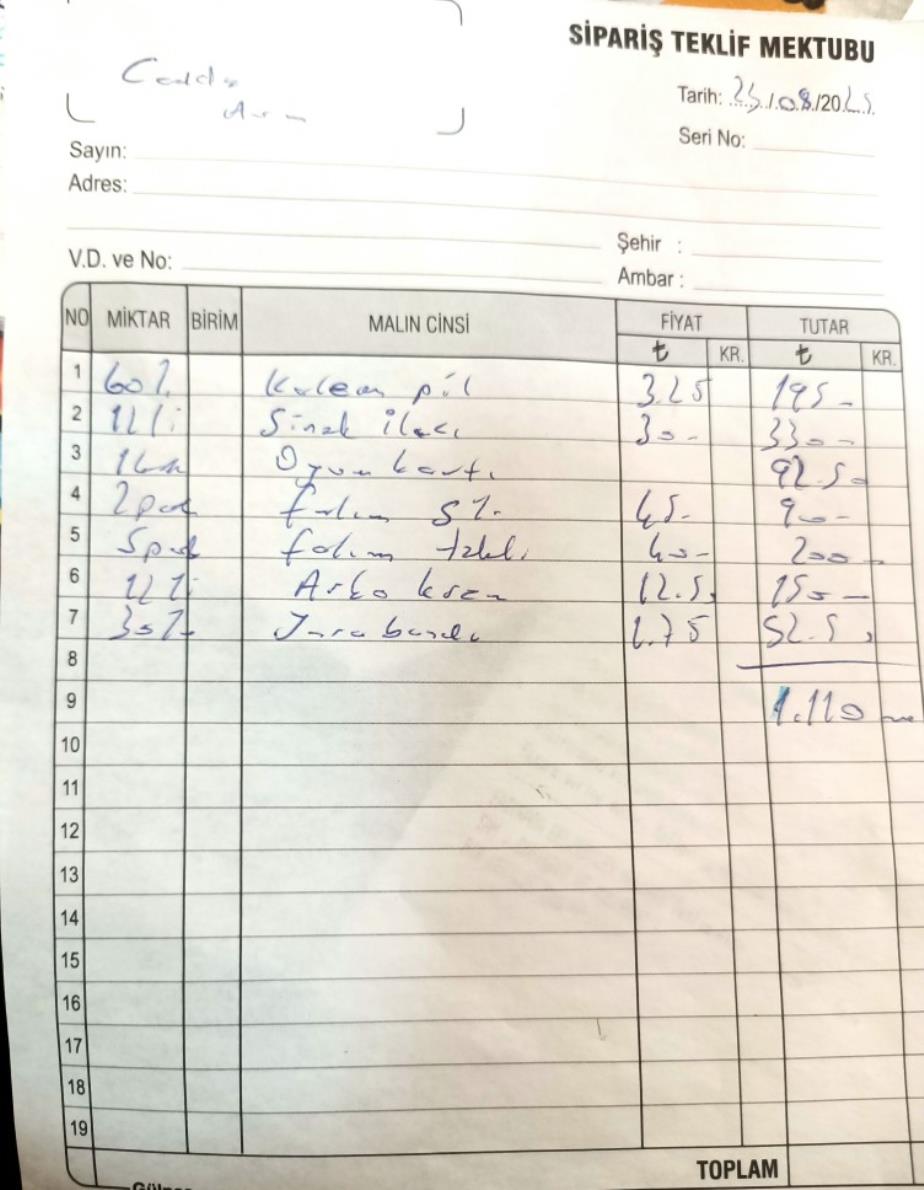 SİPARİŞ TEKLİF MEKTUBU
Cadde
Tarih: 25/08/2025
Seri No:
Sayın:
Adres:
Şehir :
V.D. ve No:
Ambar :
NO MİKTAR BİRİM MALIN CİNSİ FİYAT TUTAR
₺ KR. ₺ KR.
1 60 pil 3.25 195-
2 12 li Sinek ilacı 300- 3300-
3 Oyun kartı 92.50
4 2 pak falım 5% 45- 900-
5 5 pak falım 40- 200-
6 12 li Arko krem 12.5, 150-
7 30 Yara bandı 1.75 52.5,
8
9 1.110
10
11
12
13
14
15
16
17
18
19
TOPLAM